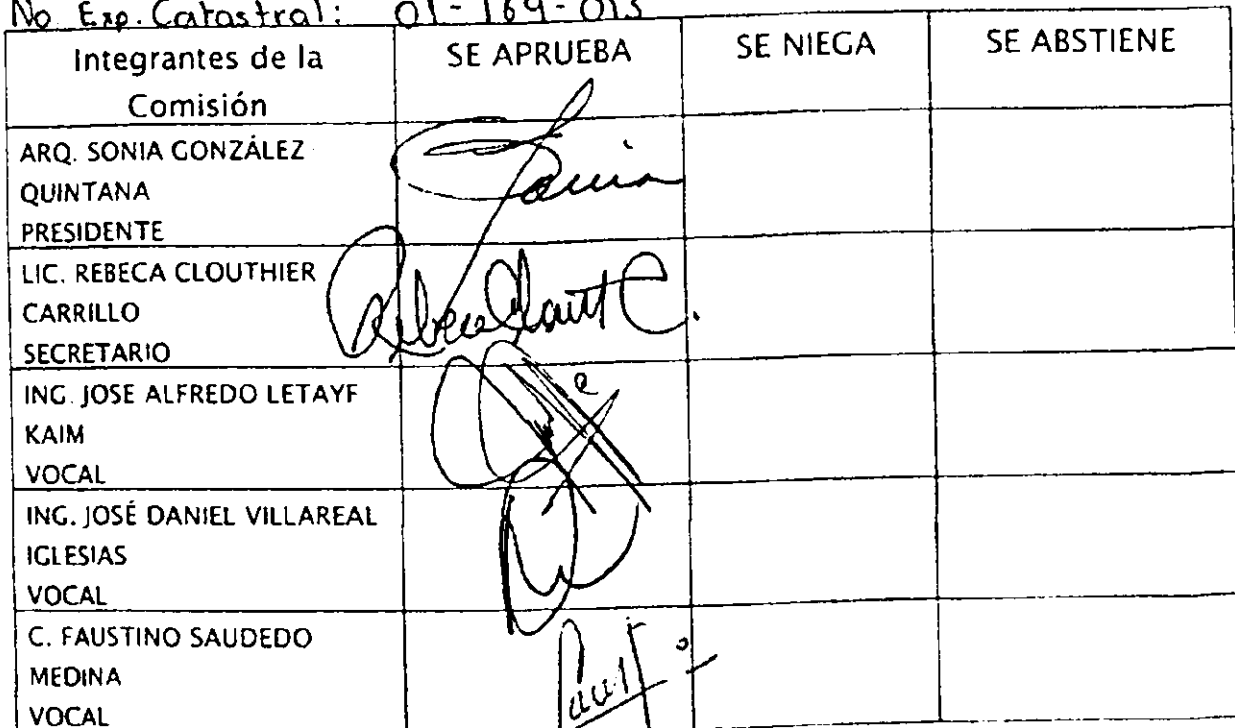 No. Exp. Catastral: 01-169-013
Integrantes de la Comisión SE APRUEBA SE NIEGA SE ABSTIENE
ARQ. SONIA GONZÁLEZ
QUINTANA
PRESIDENTE
LIC. REBECA CLOUTHIER
CARRILLO
SECRETARIO
ING. JOSE ALFREDO LETAYF
KAIM
VOCAL
ING. JOSÉ DANIEL VILLAREAL
IGLESIAS
VOCAL
C. FAUSTINO SAUDEDO
MEDINA
VOCAL